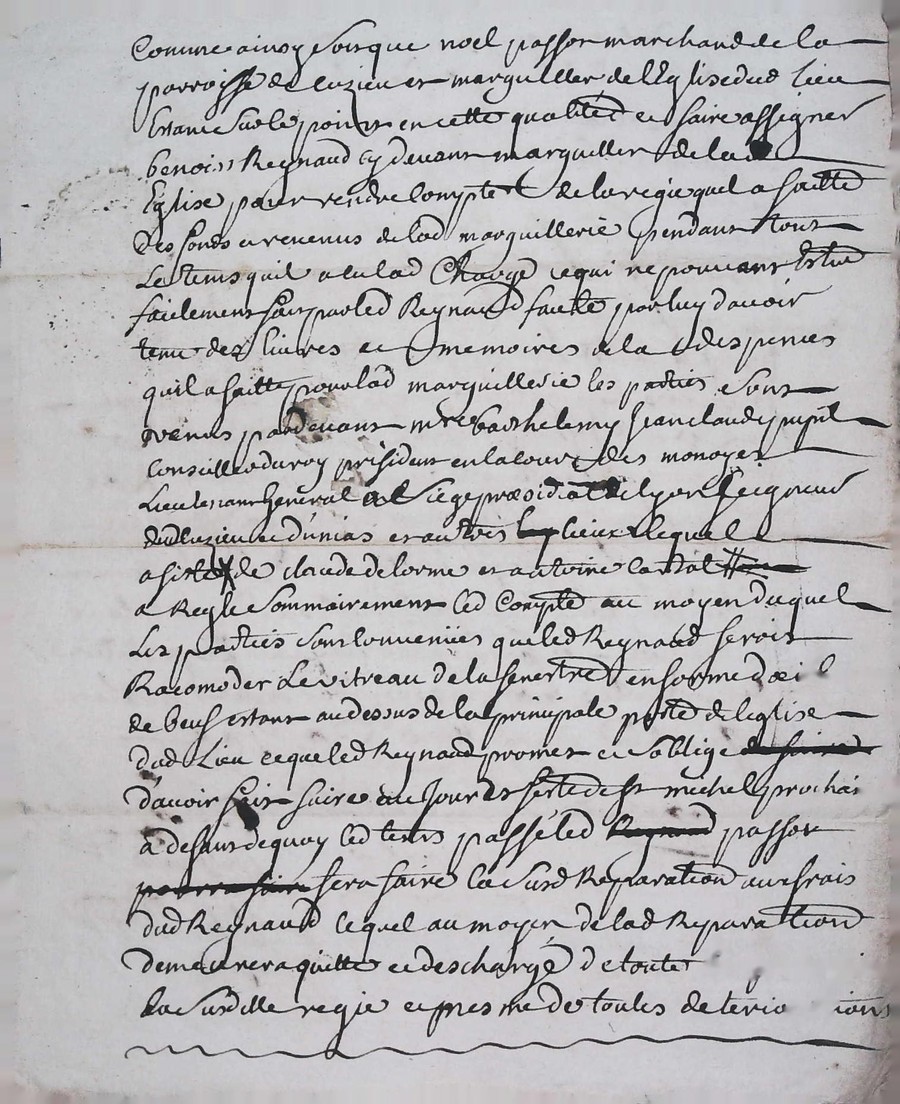 Comme ainsy soit que noel passot marchand de la
parroisse de luzieu et marguiller de l'Eglise dud lieu
Estant sur le point en cette qualité de faire assigner
benoist Reynaud cy devant marguiller de lad
Eglise pour rendre Compte de la regie quil a faitte
Des fonds et revenus de lad marguillerie pendant tout
Le tems quil a eu lad Charge ce qui ne pouvant Estre
facilement fait par led Reynaud faute par luy d'avoir
tenu des livres et memoires de la despences
quil a faitte pour lad marguillerie les parties sont
venus pardevant mre barthelemy Jean claude pupil
Conseiller du roy président en la cour des monoyes
Lieutenant General au Siege præsidial de lyon Seigneur
de luzieu et autres lieux lequel
assisté de claude delorme et antoine
a Reglé Sommairement led Compte au moyen duquel
Les parties sont convenües que led Reynaud feroit
Racomoder Le vitreau de la fenestre en forme d'œil
de beuf estant au dessus de la principale porte de leglise
dud Lieu ce que led Reynaud promet et s'oblige de faire
d'avoir fait faire au Jour et feste de st michel prochai
a defaut de quoy led tems passé led Reynaud passot
pourra faire fera faire la susd Reparation aux frais
dud Reynaud lequel au moyen de lad Reparation
demeurera quitte et deschargé de toute
la Susditte regie et mesme de toutes